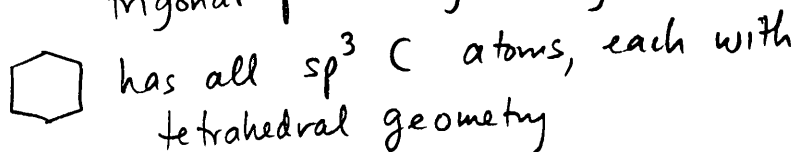 trigonal
has all sp³ C atoms, each with
tetrahedral geometry